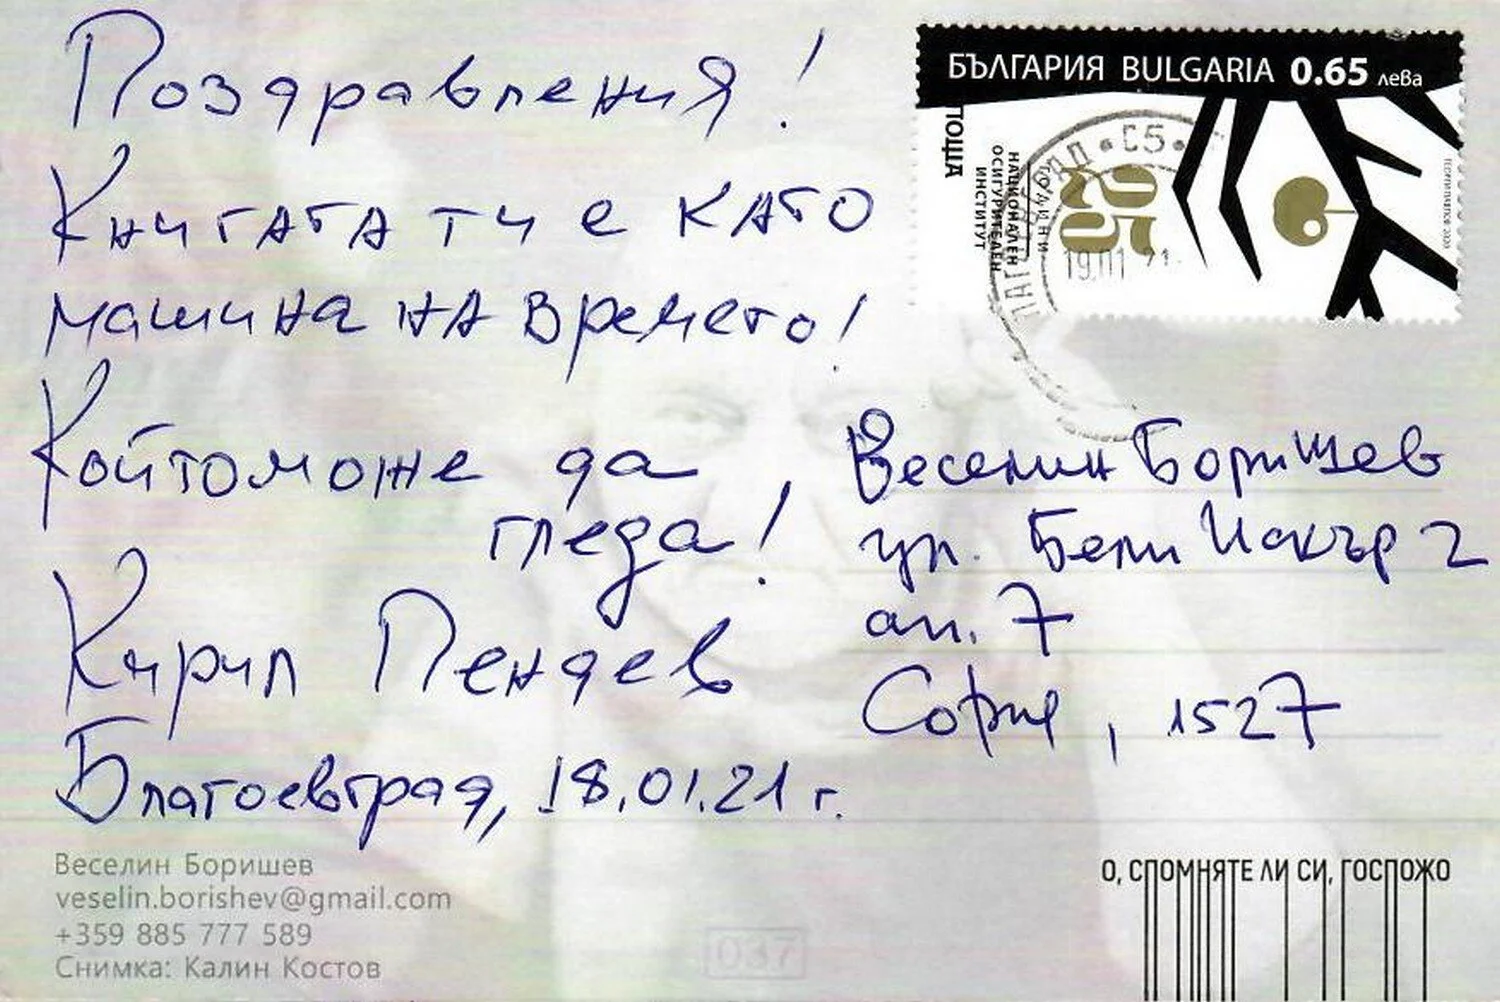 Поздравления!
Книгата ти е като
машина на времето!
Който може да
гледа!
Кирил Пендев
Благоевград, 18.01.21 г.
БЪЛГАРИЯ BULGARIA 0.65 лева
ПОЩА
НАЦИОНАЛЕН
ОСИГУРИТЕЛЕН
ИНСТИТУТ
25
ГОДИНИ
19.01.21
Веселин Боришев
ул. Бели Искър 2
ап. 7
София, 1527
Веселин Боришев
veselin.borishev@gmail.com
+359 885 777 589
Снимка: Калин Костов
037
О, СПОМНЯТЕ ЛИ СИ, ГОСПОЖО